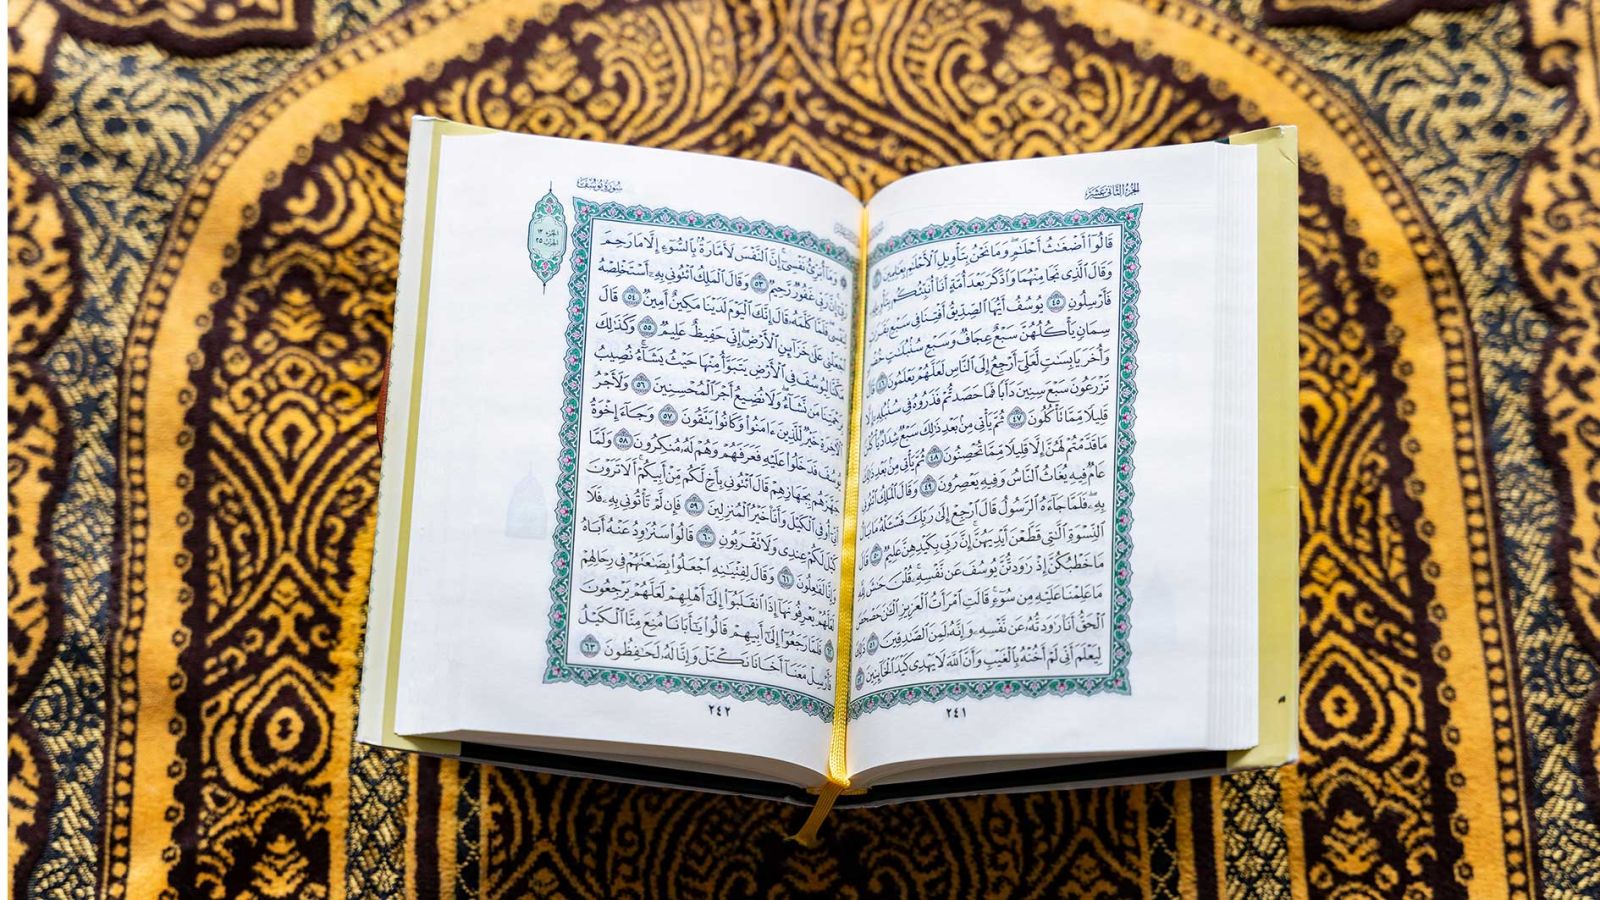 الجزء الثاني عشر
قَالُوٓاْ أَضْغَٰثُ أَحْلَٰمٍ وَمَا نَحْنُ بِتَأْوِيلِ ٱلْأَحْلَٰمِ بِعَٰلِمِينَ
وَقَالَ ٱلَّذِى نَجَا مِنْهُمَا وَٱدَّكَرَ بَعْدَ أُمَّةٍ أَنَا۠ أُنَبِّئُكُم بِتَأْوِيلِهِۦ
فَأَرْسِلُونِ ٤٥ يُوسُفُ أَيُّهَا ٱلصِّدِّيقُ أَفْتِنَا فِى سَبْعِ بَقَرَٰتٍ
سِمَانٍ يَأْكُلُهُنَّ سَبْعٌ عِجَافٌ وَسَبْعِ سُنۢبُلَٰتٍ خُضْرٍ
وَأُخَرَ يَابِسَٰتٍ لَّعَلِّىٓ أَرْجِعُ إِلَى ٱلنَّاسِ لَعَلَّهُمْ يَعْلَمُونَ ٤٦ قَالَ
تَزْرَعُونَ سَبْعَ سِنِينَ دَأَبًا فَمَا حَصَدتُّمْ فَذَرُوهُ فِى سُنۢبُلِهِۦٓ إِلَّا
قَلِيلًا مِّمَّا تَأْكُلُونَ ٤٧ ثُمَّ يَأْتِى مِنۢ بَعْدِ ذَٰلِكَ سَبْعٌ شِدَادٌ يَأْكُلْنَ
مَا قَدَّمْتُمْ لَهُنَّ إِلَّا قَلِيلًا مِّمَّا تُحْصِنُونَ ٤٨ ثُمَّ يَأْتِى مِنۢ بَعْدِ ذَٰلِكَ
عَامٌ فِيهِ يُغَاثُ ٱلنَّاسُ وَفِيهِ يَعْصِرُونَ ٤٩ وَقَالَ ٱلْمَلِكُ ٱئْتُونِى
بِهِۦ فَلَمَّا جَآءَهُ ٱلرَّسُولُ قَالَ ٱرْجِعْ إِلَىٰ رَبِّكَ فَسْـَٔلْهُ مَا بَالُ
ٱلنِّسْوَةِ ٱلَّٰتِى قَطَّعْنَ أَيْدِيَهُنَّ إِنَّ رَبِّى بِكَيْدِهِنَّ عَلِيمٌ ٥٠ قَالَ
مَا خَطْبُكُنَّ إِذْ رَٰوَدتُّنَّ يُوسُفَ عَن نَّفْسِهِۦ قُلْنَ حَٰشَ لِلَّهِ
مَا عَلِمْنَا عَلَيْهِ مِن سُوٓءٍ قَالَتِ ٱمْرَأَتُ ٱلْعَزِيزِ ٱلْـَٰٔنَ حَصْحَصَ
ٱلْحَقُّ أَنَا۠ رَٰوَدتُّهُۥ عَن نَّفْسِهِۦ وَإِنَّهُۥ لَمِنَ ٱلصَّٰدِقِينَ ٥١ ذَٰلِكَ
لِيَعْلَمَ أَنِّى لَمْ أَخُنْهُ بِٱلْغَيْبِ وَأَنَّ ٱللَّهَ لَا يَهْدِى كَيْدَ ٱلْخَآئِنِينَ ٥٢
٢٤١
سورة يوسف
الجزء ١٢
الحزب ٢٥
وَمَآ أُبَرِّئُ نَفْسِىٓ إِنَّ ٱلنَّفْسَ لَأَمَّارَةٌۢ بِٱلسُّوٓءِ إِلَّا مَا رَحِمَ
رَبِّىٓ إِنَّ رَبِّى غَفُورٌ رَّحِيمٌ ٥٣ وَقَالَ ٱلْمَلِكُ ٱئْتُونِى بِهِۦٓ أَسْتَخْلِصْهُ
لِنَفْسِى فَلَمَّا كَلَّمَهُۥ قَالَ إِنَّكَ ٱلْيَوْمَ لَدَيْنَا مَكِينٌ أَمِينٌ ٥٤ قَالَ
ٱجْعَلْنِى عَلَىٰ خَزَآئِنِ ٱلْأَرْضِ إِنِّى حَفِيظٌ عَلِيمٌ ٥٥ وَكَذَٰلِكَ
مَكَّنَّا لِيُوسُفَ فِى ٱلْأَرْضِ يَتَبَوَّأُ مِنْهَا حَيْثُ يَشَآءُ نُصِيبُ
بِرَحْمَتِنَا مَن نَّشَآءُ وَلَا نُضِيعُ أَجْرَ ٱلْمُحْسِنِينَ ٥٦ وَلَأَجْرُ
ٱلْـَٔاخِرَةِ خَيْرٌ لِّلَّذِينَ ءَامَنُواْ وَكَانُواْ يَتَّقُونَ ٥٧ وَجَآءَ إِخْوَةُ
يُوسُفَ فَدَخَلُواْ عَلَيْهِ فَعَرَفَهُمْ وَهُمْ لَهُۥ مُنكِرُونَ ٥٨ وَلَمَّا
جَهَّزَهُم بِجَهَازِهِمْ قَالَ ٱئْتُونِى بِأَخٍ لَّكُم مِّنْ أَبِيكُمْ أَلَا تَرَوْنَ
أَنِّىٓ أُوفِى ٱلْكَيْلَ وَأَنَا۠ خَيْرُ ٱلْمُنزِلِينَ ٥٩ فَإِن لَّمْ تَأْتُونِى بِهِۦ فَلَا
كَيْلَ لَكُمْ عِندِى وَلَا تَقْرَبُونِ ٦٠ قَالُواْ سَنُرَٰوِدُ عَنْهُ أَبَاهُ
وَإِنَّا لَفَٰعِلُونَ ٦١ وَقَالَ لِفِتْيَٰنِهِ ٱجْعَلُواْ بِضَٰعَتَهُمْ فِى رِحَالِهِمْ
لَعَلَّهُمْ يَعْرِفُونَهَآ إِذَا ٱنقَلَبُوٓاْ إِلَىٰٓ أَهْلِهِمْ لَعَلَّهُمْ يَرْجِعُونَ
٦٢ فَلَمَّا رَجَعُوٓاْ إِلَىٰٓ أَبِيهِمْ قَالُواْ يَٰٓأَبَانَا مُنِعَ مِنَّا ٱلْكَيْلُ
فَأَرْسِلْ مَعَنَآ أَخَانَا نَكْتَلْ وَإِنَّا لَهُۥ لَحَٰفِظُونَ ٦٣
٢٤٢